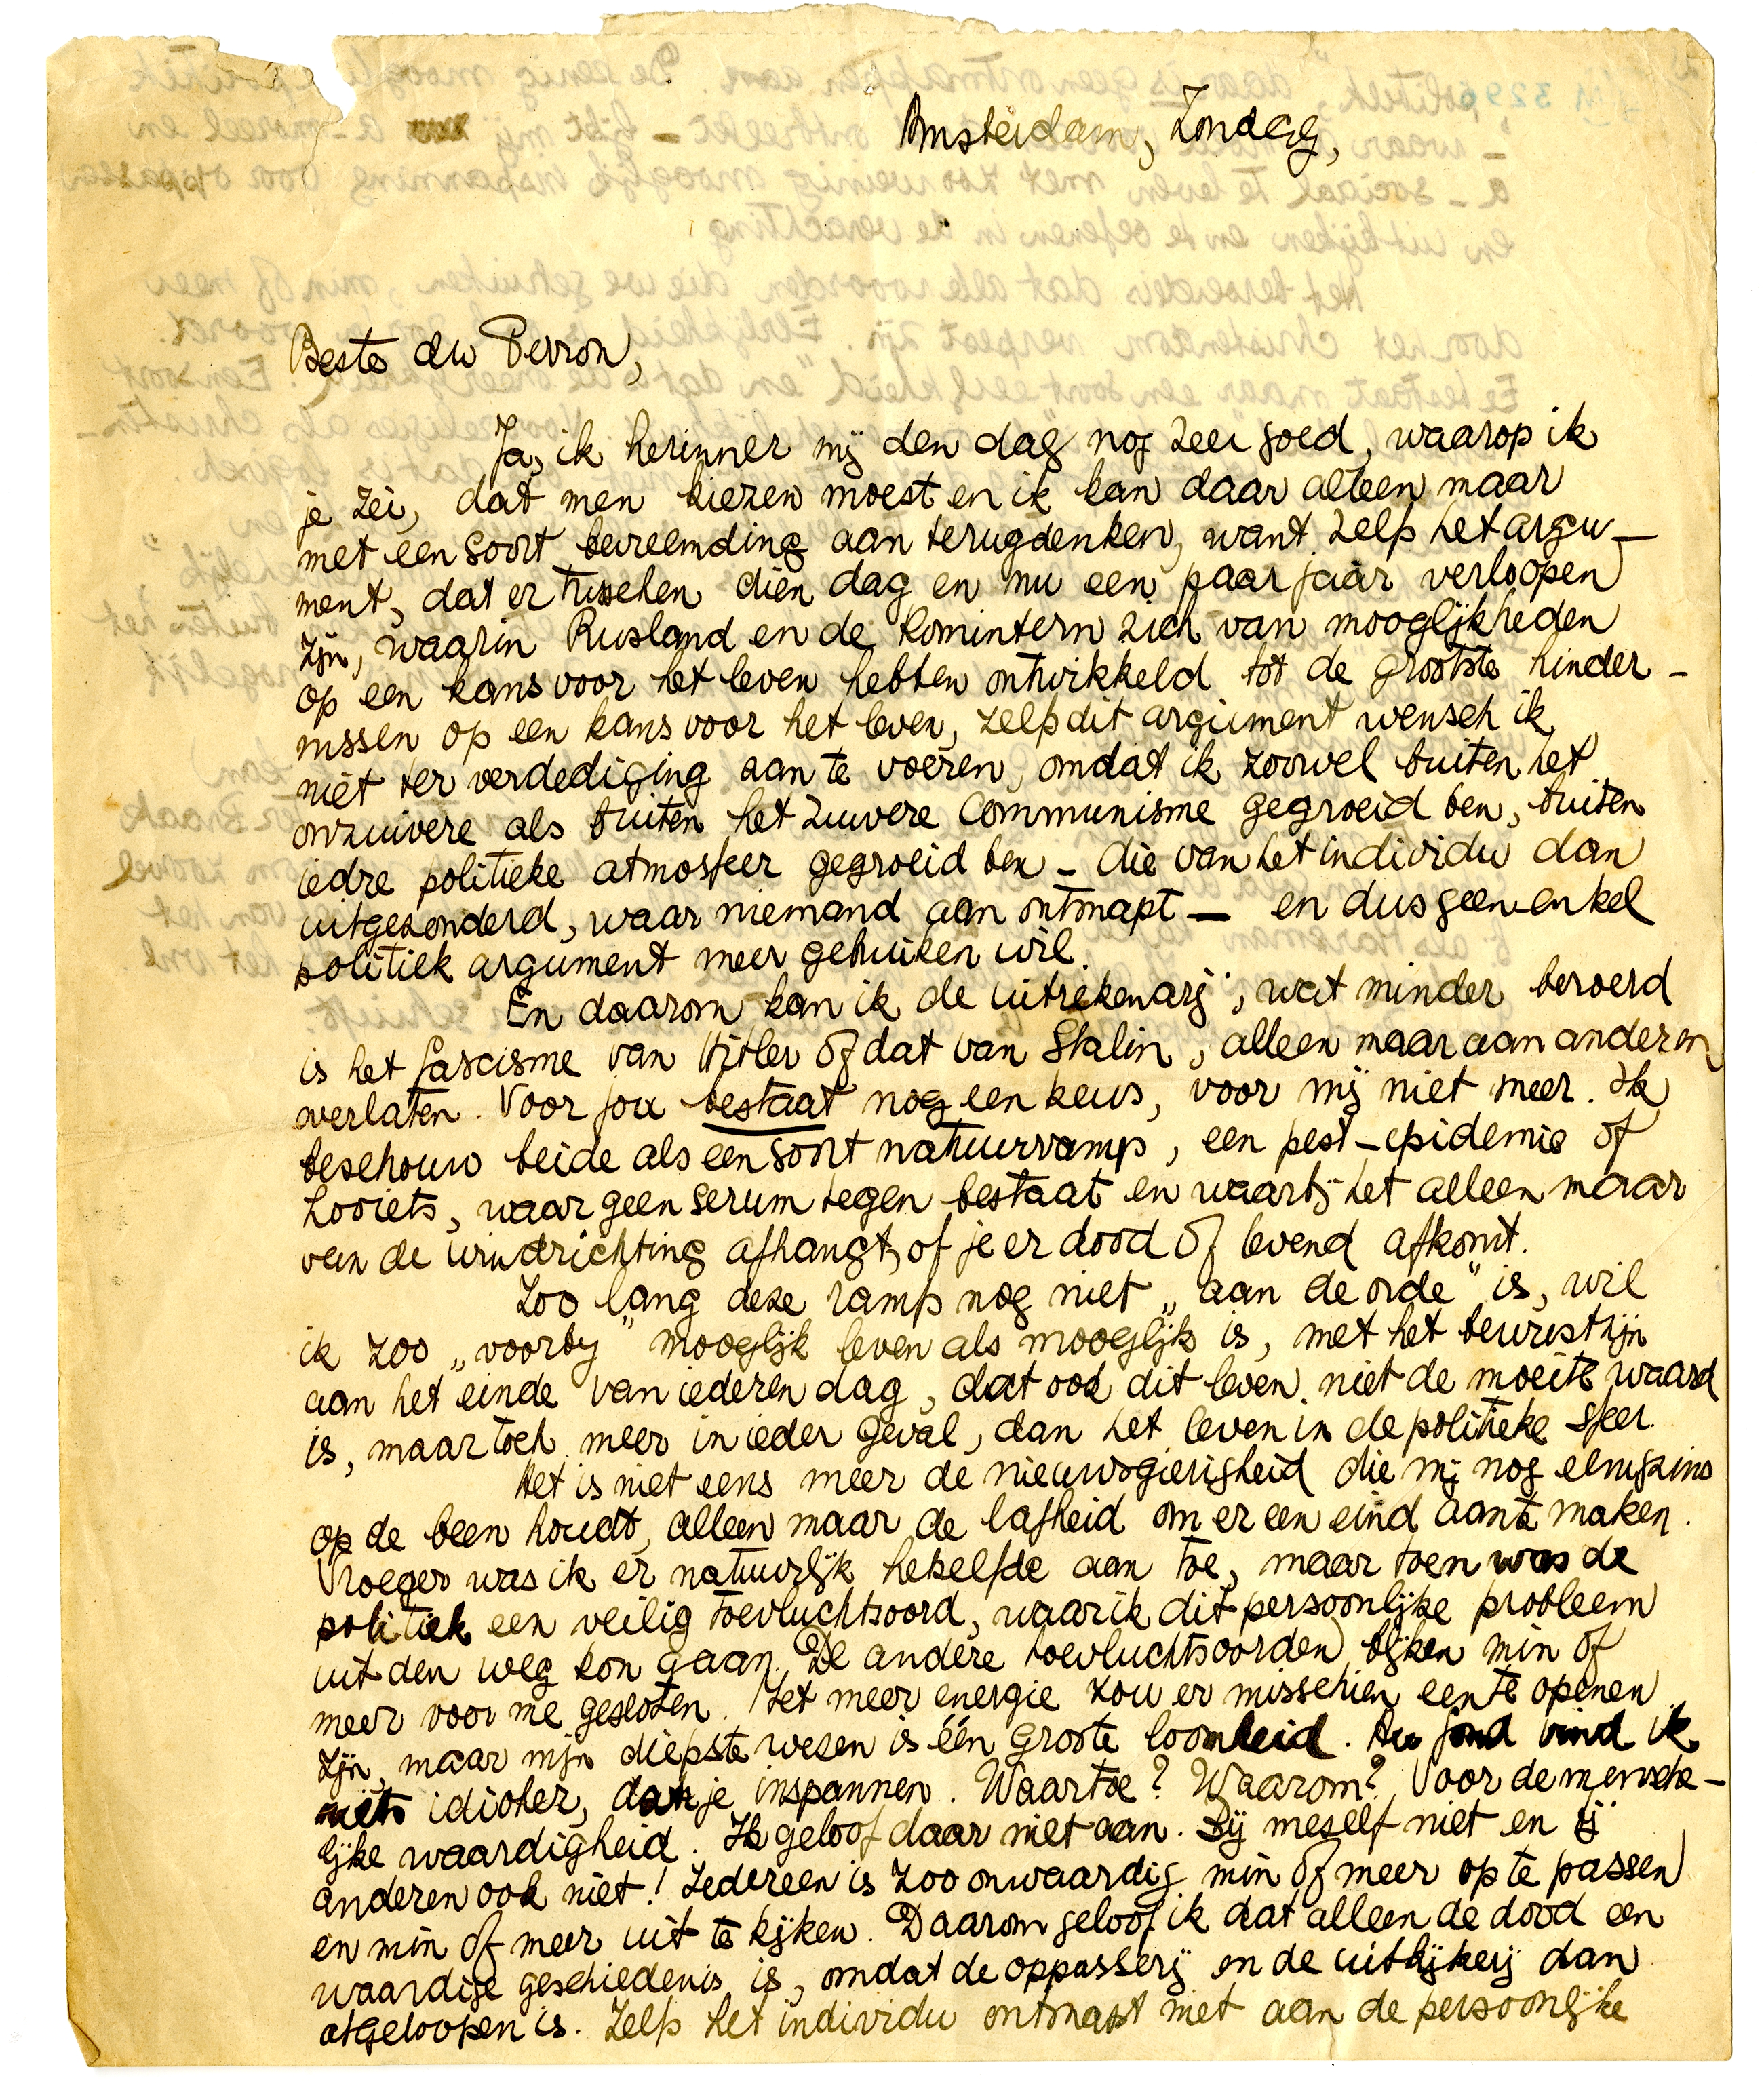 Amsterdam, Zondag,
Beste du Perron,
Ja, ik herinner mij den dag nog zeer goed, waarop ik
je zei, dat men kiezen moest en ik kan daar alleen maar
met een soort bevreemding aan terugdenken, want zelfs het argu-
ment, dat er tusschen dien dag en nu een paar jaar verloopen
zijn, waarin Rusland en de Komintern zich van mooglijkheden
op een kans voor het leven hebben ontwikkeld tot de grootste hinder-
nissen op een kans voor het leven, zelfs dit argument wensch ik
niet ter verdediging aan te voeren, omdat ik zoowel buiten het
onzuivere als buiten het zuivere Communisme gegroeid ben, buiten
iedre politieke atmosfeer gegroeid ben - die van het individu dan
uitgezonderd, waar niemand aan ontsnapt - en dus geen enkel
politiek argument meer gebruiken wil.
En daarom kan ik de uitrekenarij, wat minder beroerd
is het fascisme van Hitler of dat van Stalin, alleen maar aan anderen
overlaten. Voor jou bestaat nog een keus, voor mij niet meer. Ik
beschouw beide als een soort natuurramp, een pest-epidemie of
zooiets, waar geen serum tegen bestaat en waarbij het alleen maar
van de windrichting afhangt, of je er dood of levend afkomt.
Zoo lang deze ramp nog niet „aan de orde" is, wil
ik zoo „voorbij" mooglijk leven als mooglijk is, met het bewustzijn
aan het einde van iederen dag, dat ook dit leven niet de moeite waard
is, maar toch meer in ieder geval, dan het leven in de politieke sfeer.
Het is niet eens meer de nieuwsgierigheid die mij nog eenigszins
op de been houdt, alleen maar de lafheid om er een eind aan te maken.
Vroeger was ik er natuurlijk hetzelfde aan toe, maar toen was de
politiek een veilig toevluchtsoord, waar ik dit persoonlijke probleem
uit den weg kon gaan. De andere toevluchtsoorden blijken min of
meer voor me gesloten. Met meer energie zou er misschien een te openen
zijn, maar mijn diepste wezen is één groote loomheid. Au fond vind ik
niets idioter, dan je inspannen. Waartoe? Waarom? Voor de mensche-
lijke waardigheid. Ik geloof daar niet aan. Bij meself niet en bij
anderen ook niet! Iedereen is zoo onwaardig min of meer op te passen
en min of meer uit te kijken. Daarom geloof ik dat alleen de dood een
waardige geschiedenis is, omdat de oppasserij en de uitkijkerij dan
afgeloopen is. Zelfs het individu ontsnapt niet aan de persoonlijke